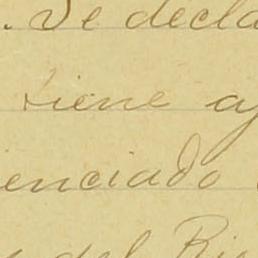 . Se decla
tiene a
enciado
del Rie